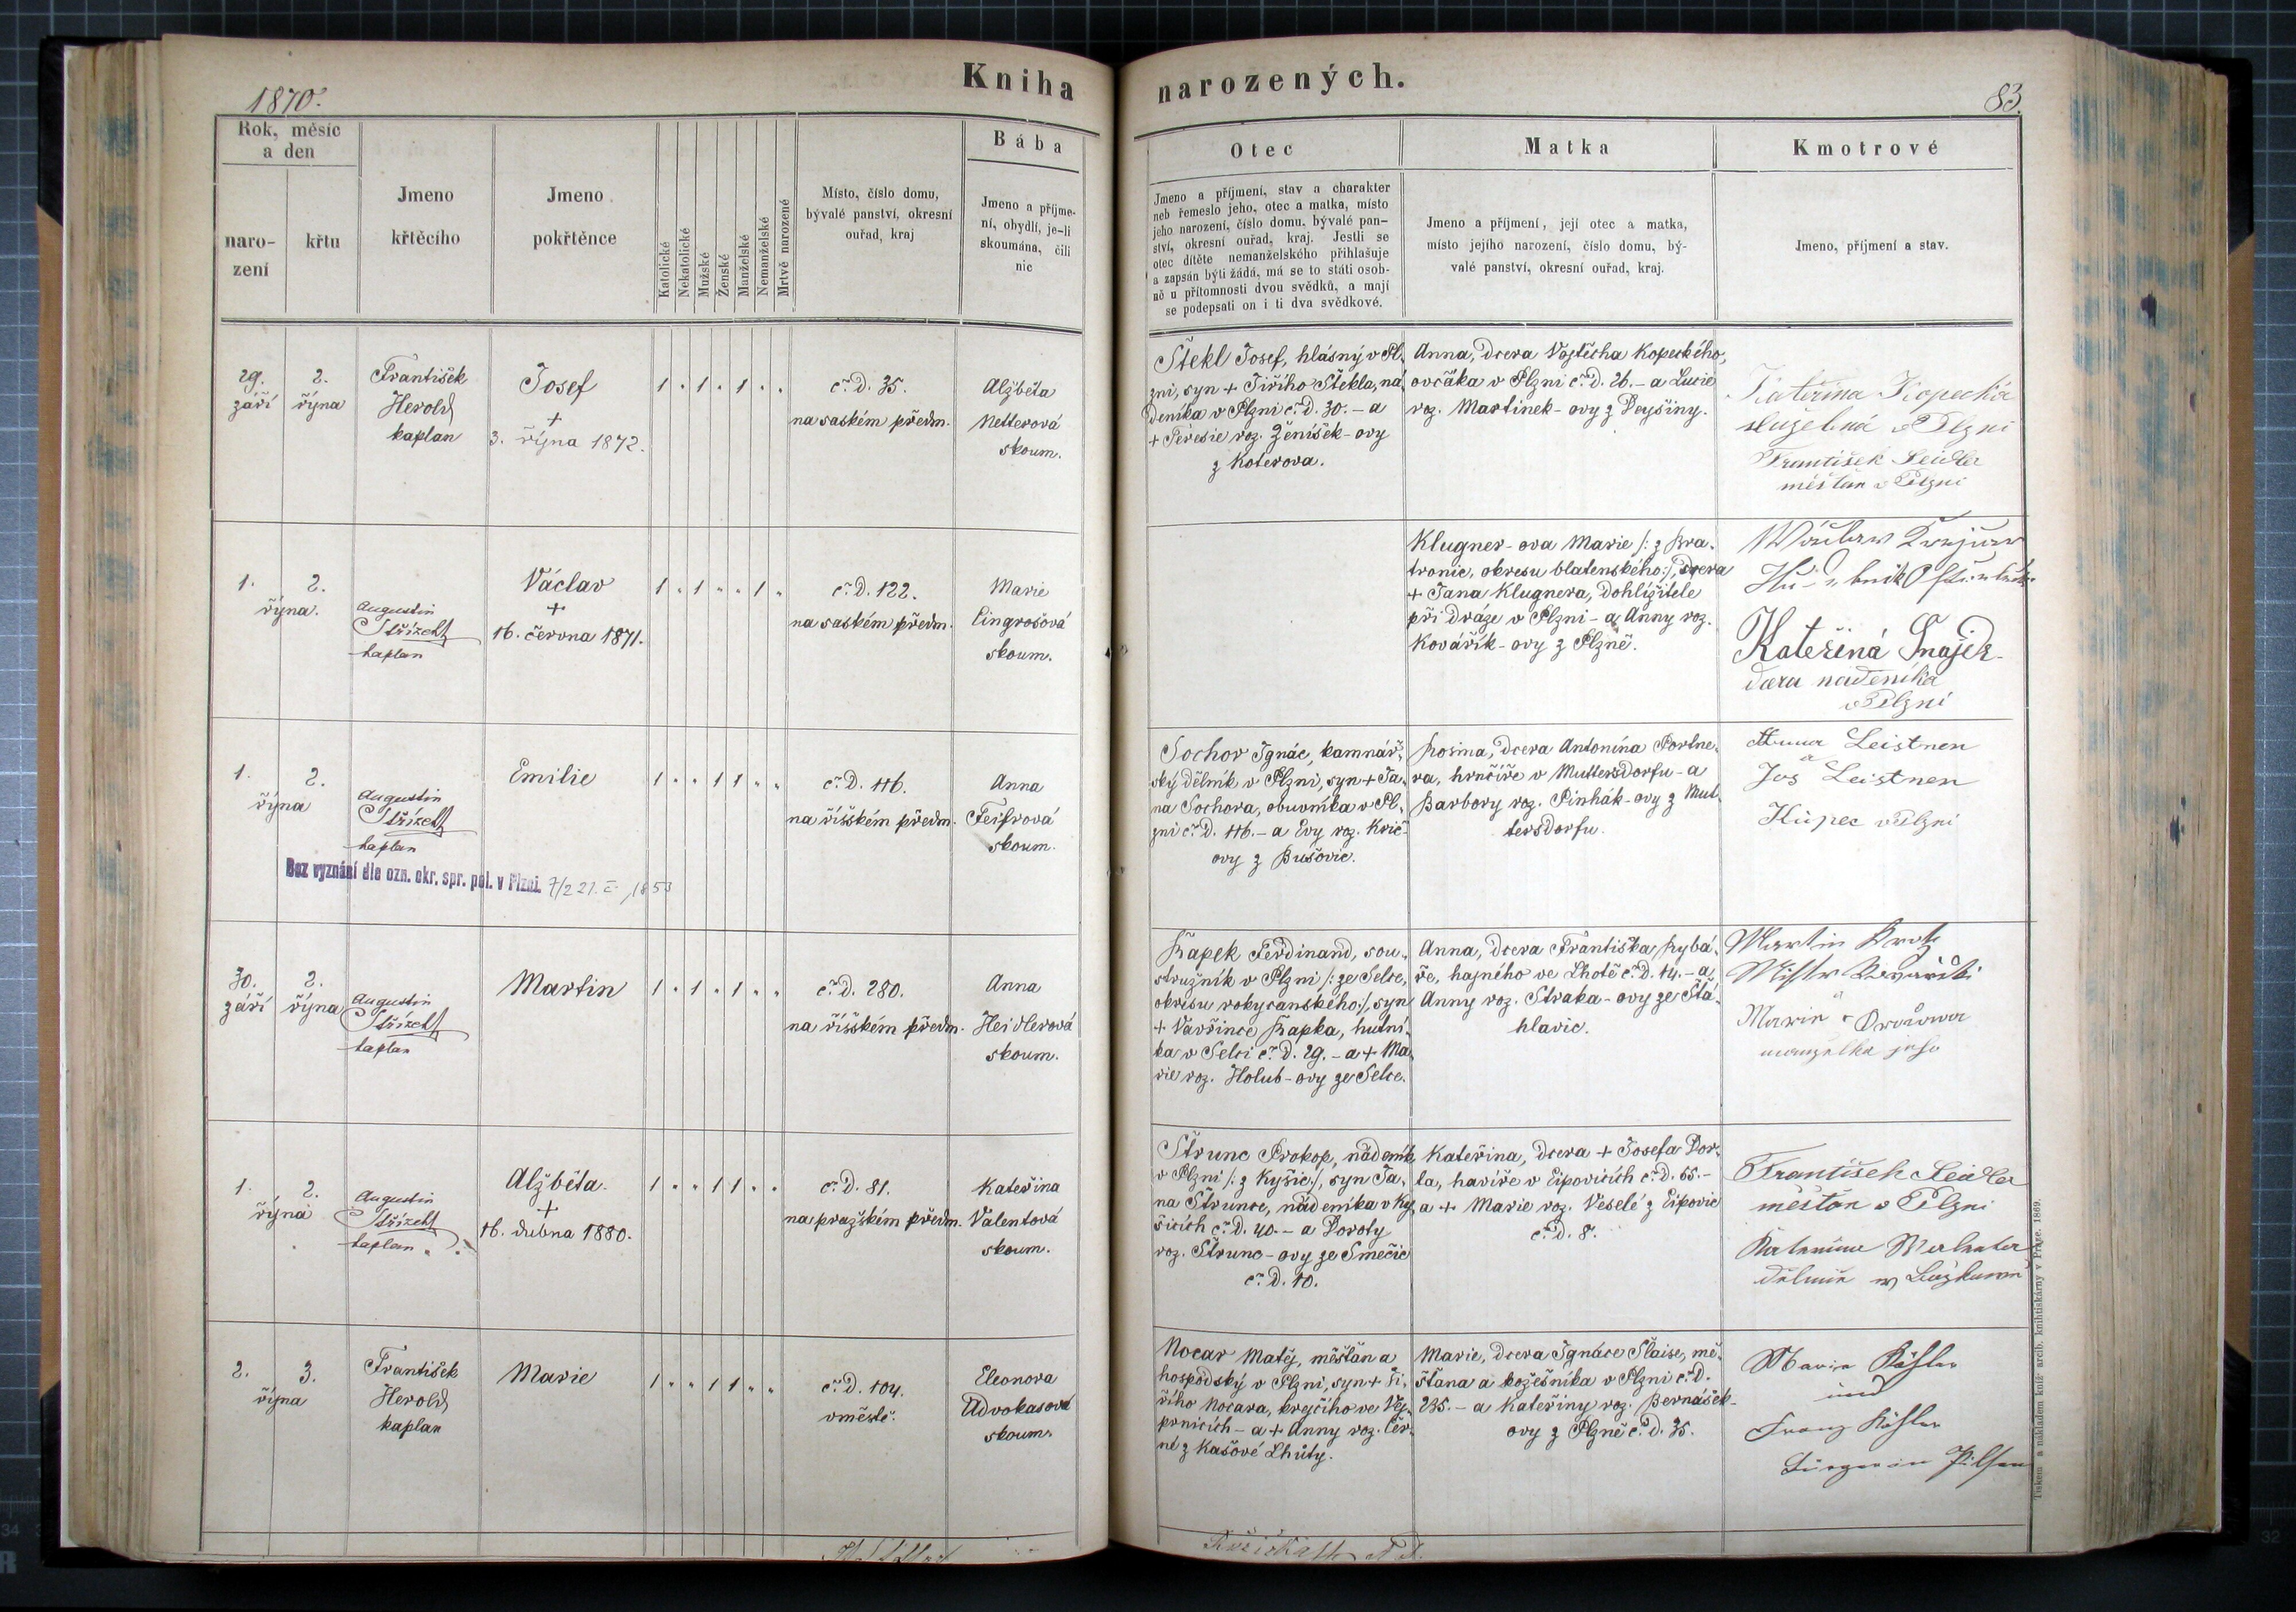 Kniha narozených.
1870.
83.
Rok, měsíc
a den
naro-
zení
křtu
Jmeno
křtěcího
Jmeno
pokřtěnce
Katolické
Nekatolické
Mužské
Ženské
Manželské
Nemanželské
Mrtvě narozené
Místo, číslo domu,
bývalé panství, okresní
ouřad, kraj
Bába
Jmeno a příjme-
ní, obydlí, je-li
skoumána, čili
nic
Otec
Jmeno a příjmení, stav a charakter
neb řemeslo jeho, otec a matka, místo
jeho narození, číslo domu, bývalé pan-
ství, okresní ouřad, kraj. Jestli se
otec dítěte nemanželského přihlašuje
a zapsán býti žádá, má se to státi osob-
ně u přítomnosti dvou svědků, a mají
se podepsati on i ti dva svědkové.
Matka
Jmeno a příjmení, její otec a matka,
místo jejího narození, číslo domu, bý-
valé panství, okresní ouřad, kraj.
Kmotrové
Jmeno, příjmení a stav.
29.
září
2.
října
František
Herold
kaplan
Josef
+
3. října 1872.
1 " 1 " 1 " "
č. d. 35.
na saském předm.
Alžběta
Netterová
skoum.
Štekl Josef, hlásný v Pl-
zni, syn + Jiřího Štekla, ná-
deníka v Plzni č. d. 30. - a
+ Teresie roz. Ženíšek-ovy
z Koterova.
Anna, dcera Vojtěcha Kopeckého,
ovčáka v Plzni č. d. 26. - a Lucie
roz. Martinek-ovy z Deyšiny.
Kateřina Kopecká
služebná v Plzni
František Seidler
měšťan v Plzni
1.
2.
října.
Augustin
Střízek
kaplan
Václav
+
16. června 1871.
1 " 1 " " 1 "
č. d. 122.
na saském předm.
Marie
Lingrošová
skoum.
Klugner-ova Marie /: z Kra-
tronic, okresu blatenského :/, dcera
+ Jana Klugnera, dohlížitele
při dráze v Plzni - a Anny roz.
Kovářík-ovy z Plzně.
Kateřina Šnajdr
dcera nádeníka
v Plzni
1.
2.
října
Augustin
Střízek
kaplan
Emilie
1 " " 1 1 " "
č. d. 116.
na říšském předm.
Anna
Feifrová
skoum.
Bez vyznání dle ozn. okr. spr. pol. v Plzni.
Sochor Ignác, kamnář-
ský dělník v Plzni, syn + Ja-
na Sochora, obuvníka v Pl-
zni č. d. 116. - a Evy roz. Krič-
ovy z Bušovic.
Rosina, dcera Antonína Portne-
ra, hrnčíře v Muttersdorfu - a
Barbory roz. Pinhák-ovy z Mut-
tersdorfu.
Anna Leistner
Jos Leistner
Kupec v Plzni
30.
září
2.
října
Augustin
Střízek
kaplan
Martin
1 " 1 " 1 " "
č. d. 280.
na říšském předm.
Anna
Heidlerová
skoum.
Kapek Ferdinand, sou-
stružník v Plzni /: ze Selce,
okresu rokycanského :/, syn
+ Vavřince Kapka, hutní-
ka v Selci č. d. 29. - a + Ma-
rie roz. Holub-ovy ze Selce.
Anna, dcera Františka Rybá-
ře, hajného ve Lhotě č. d. 14. - a
Anny roz. Straka-ovy ze Stá-
hlavic.
Martin
Marie
manzelka jeho
1.
2.
října
Augustin
Střízek
kaplan
Alžběta.
+
16. dubna 1880.
1 " " 1 1 " "
č. d. 81.
na pražském předm.
Kateřina
Valentová
skoum.
Štrunc Prokop, nádeník
v Plzni /: z Kyšic :/, syn Ja-
na Štrunce, nádeníka v Ky-
šicích č. d. 40. - a Doroty
roz. Štrunc-ovy ze Smečic
č. d. 10.
Kateřina, dcera + Josefa Dor-
la, havíře v Eipovicích č. d. 65. -
a + Marie roz. Veselé z Eipovic
č. d. 8.
František Seidler
měšťan v Plzni
2.
3.
října
František
Herold
kaplan
Marie
1 " " 1 1 " "
č. d. 104.
v městě.
Eleonora
Advokasová
skoum.
Nocar Matěj, měšťan a
hospodský v Plzni, syn + Ji-
řího Nocara, krejčího ve Vej-
prnicích - a + Anny roz. Čer-
né z Kašové Lhůty.
Marie, dcera Ignáce Šlaise, mě-
šťana a kožešníka v Plzni č. d.
235. - a Kateřiny roz. Bernášek-
ovy z Plzně č. d. 35.
Maria Kößler
und
Franz Kößler
Bürger in Pilsen
Tiskem a nákladem kniž. arcib. knihtiskárny v Praze. 1869.